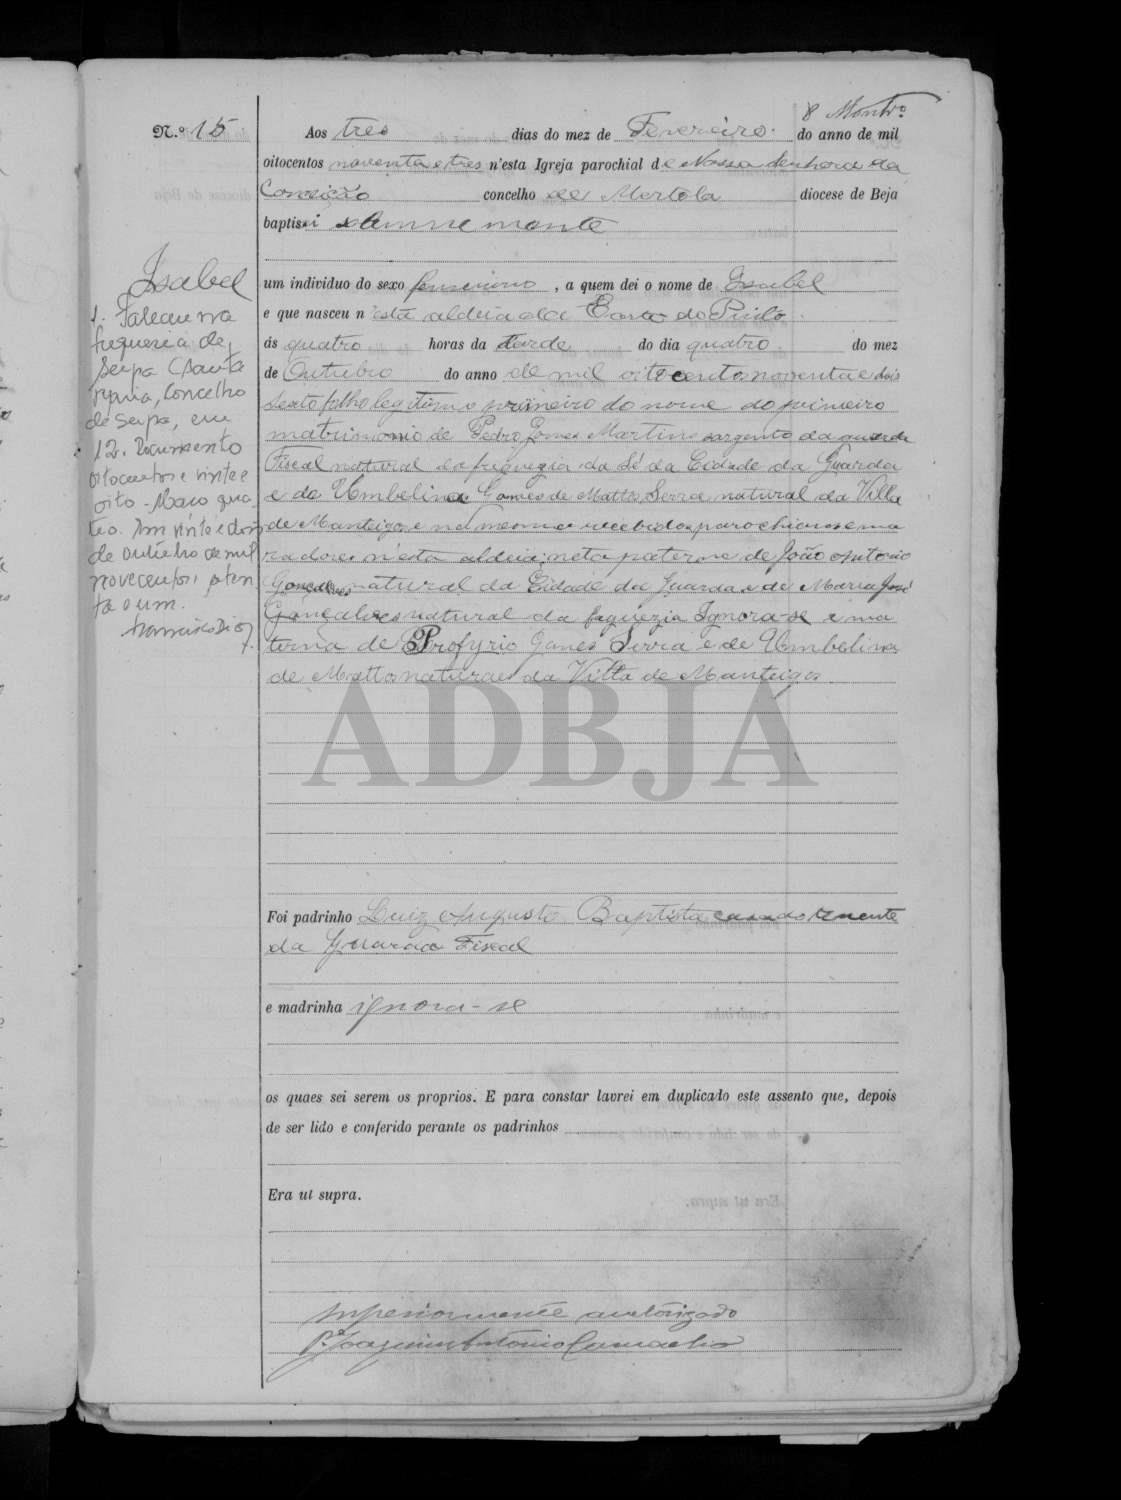 8 Montr.º
N.º 15
Aos tres dias do mez de Fevereiro do anno de mil
oitocentos noventa e tres n'esta Igreja parochial de Nossa Senhora da
Conceição concelho de Mertola diocese de Beja
baptisei solemnemente
Isabel
um individuo do sexo feminino, a quem dei o nome de Isabel
e que nasceu n'esta aldeia do do Pinto
ás quatro horas da tarde do dia quatro do mez
de Outubro do anno de mil oitocentos noventa e dois
sexto filho legitimo primeiro do nome do primeiro
matrimonio de Pedro Gomes Martins sargento da guarda
Fiscal natural da freguezia da Sé da Cidade da Guarda
e de Umbelina Gomes de Mattos Serra natural da Villa
de Manteigas e na mesma recebidos parochianos e mo
radores n'esta aldeia; neta paterna de João Antonio
Gonçalves natural da Cidade da Guarda e de Maria José
Gonçalves natural da freguezia Ignora-se e ma
terna de Profyrio Gomes Serra e de Umbelina
de Mattos naturaes da Villa de Manteigas
1. Faleceu na
freguesia de
Serpa (Santa
Maria), Concelho
de Serpa, em
12. Documento
oitocentos e vinte e
oito - Maço qua-
tro. Em vinte e dois
de Outubro de mil
novecentos oiten
ta e um.
Francisco Dioz
ADBJA
Foi padrinho Luiz Augusto Baptista casado tenente
da Guarda Fiscal
e madrinha ignora-se
os quaes sei serem os proprios. E para constar lavrei em duplicado este assento que, depois
de ser lido e conferido perante os padrinhos
Era ut supra.
Superiormente auctorizado
P.e Joaquim Antonio Camacho